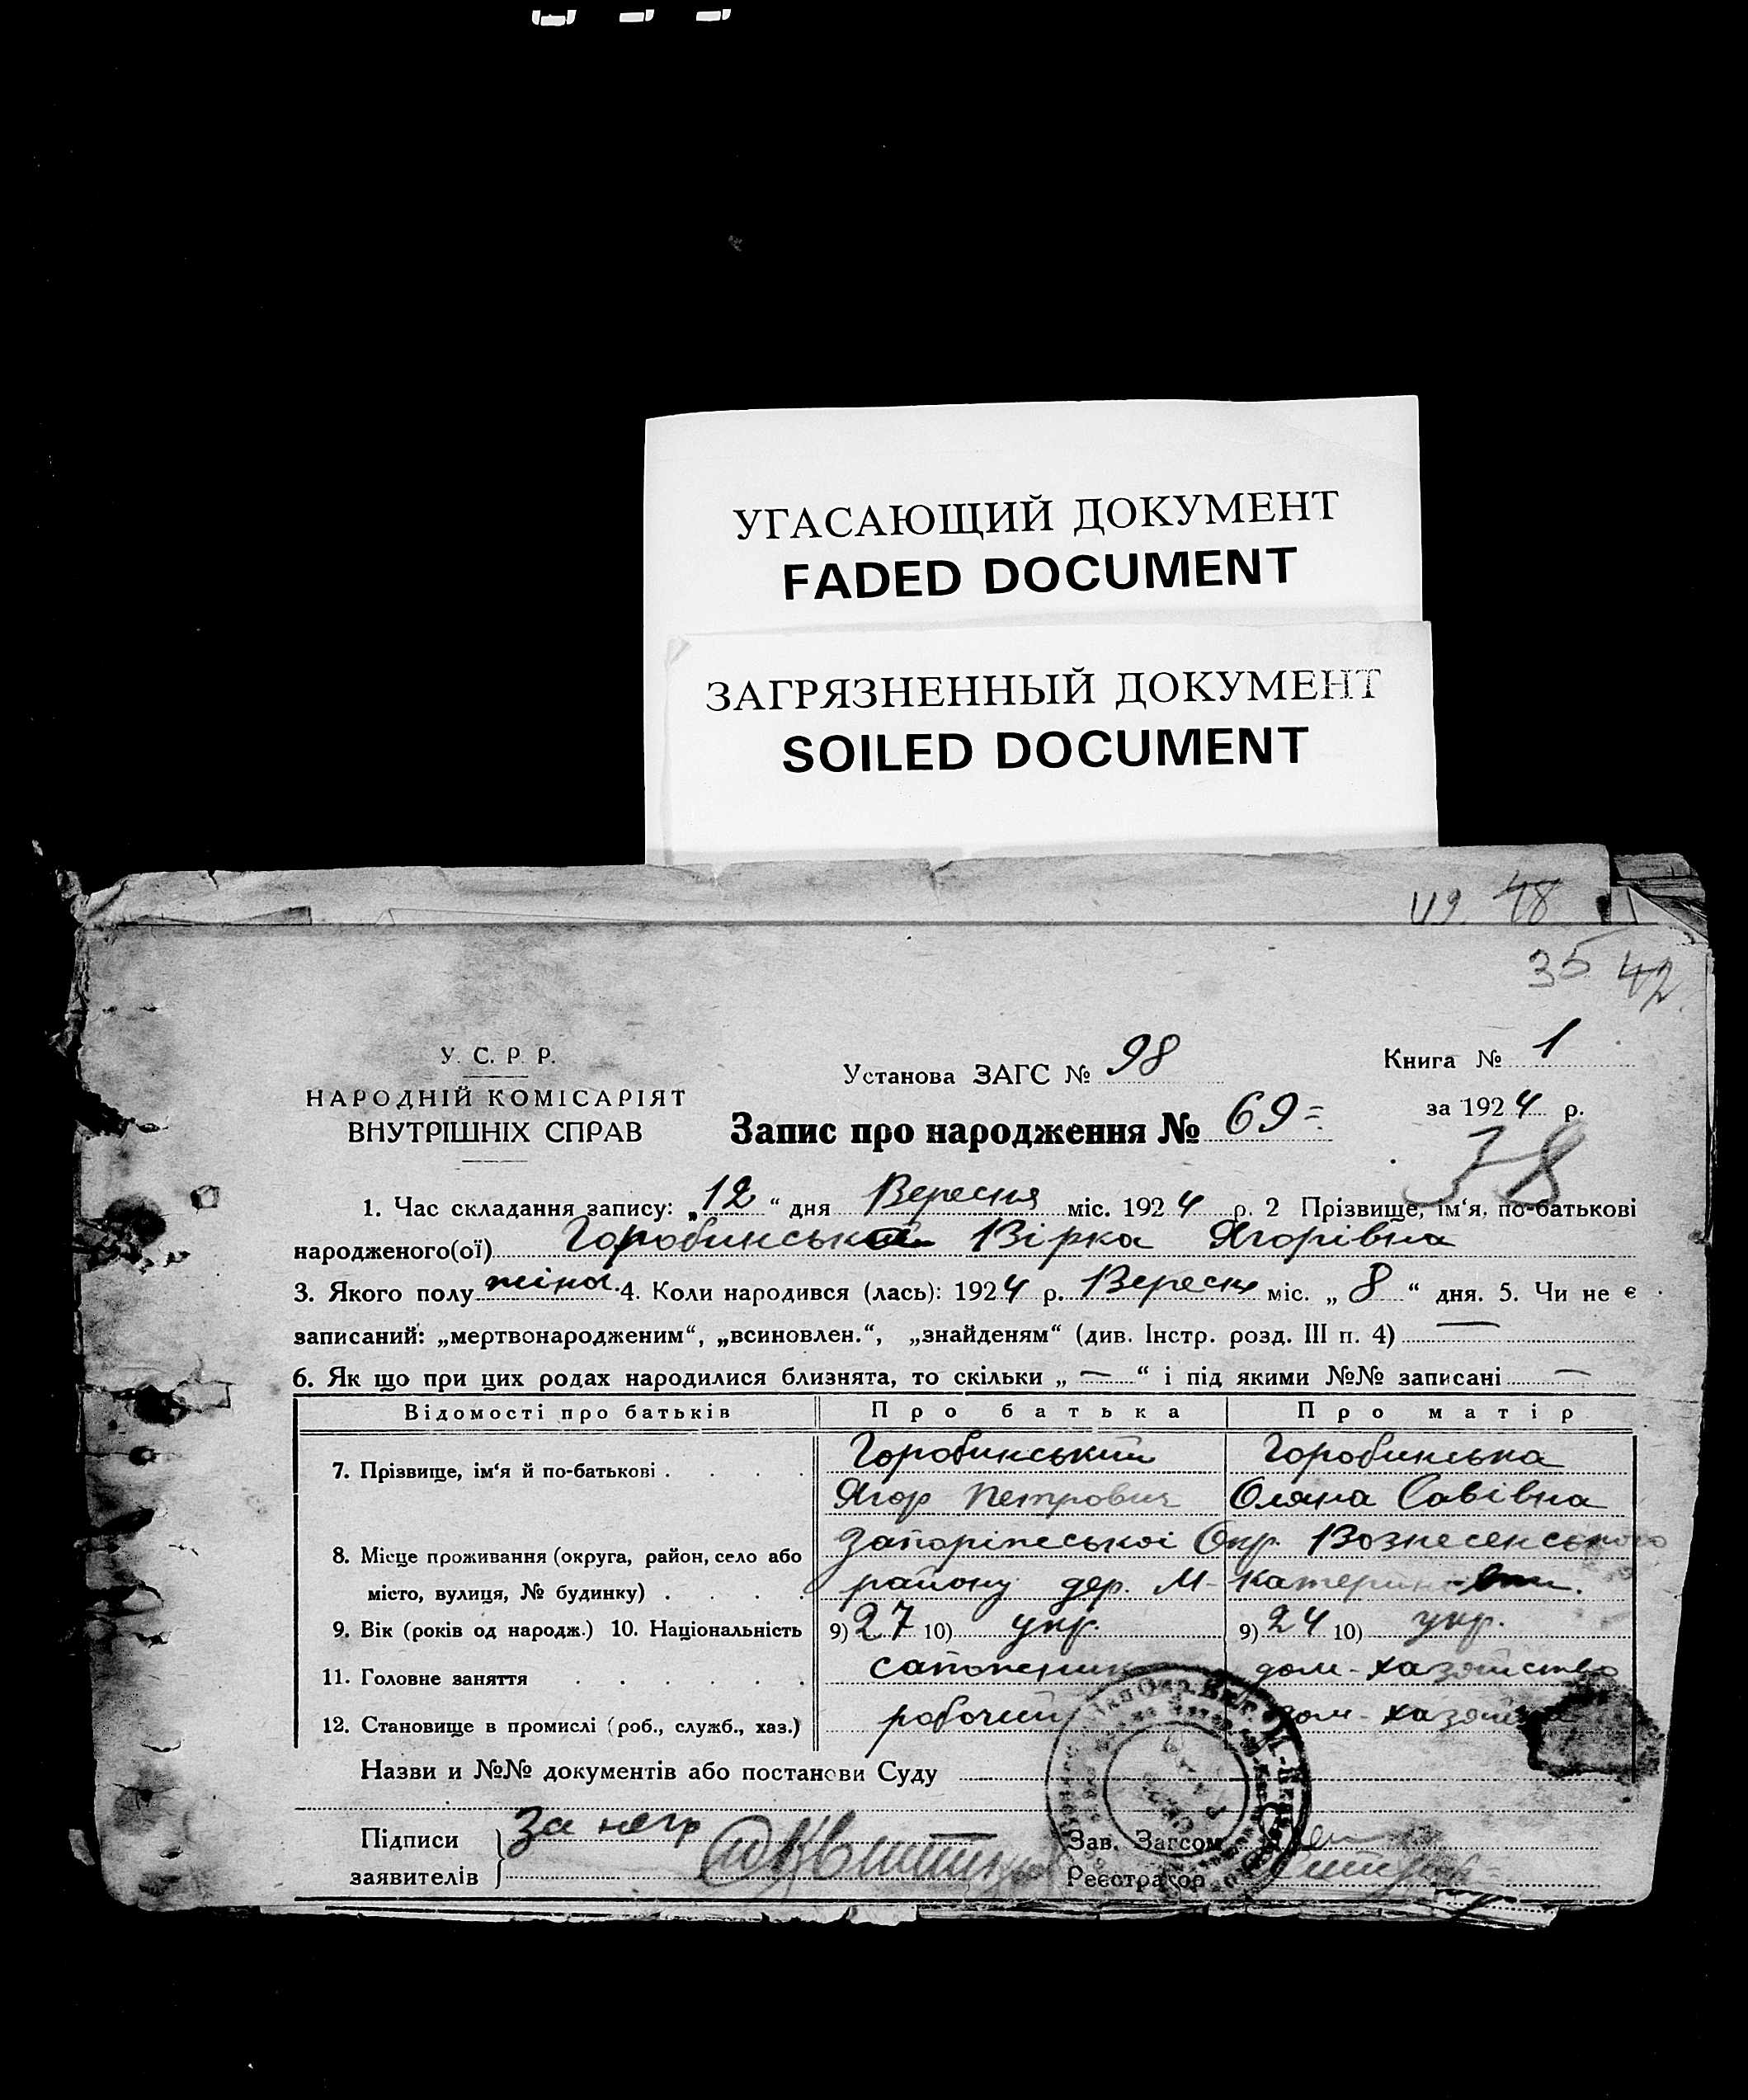 УГАСАЮЩИЙ ДОКУМЕНТ
FADED DOCUMENT
ЗАГРЯЗНЕННЫЙ ДОКУМЕНТ
SOILED DOCUMENT
49. 48
35 42
У. С. Р. Р.
НАРОДНІЙ КОМІСАРІЯТ
ВНУТРІШНІХ СПРАВ
Установа ЗАГС № 98
Книга № 1
за 1924 р.
Запис про народження № 69=
38
1. Час складання запису: „12“ дня Вересня міс. 1924 р. 2 Прізвище, ім‘я, по-батькові
народженого(ої) Горобинська Вірка Ягорівна
3. Якого полу жіноч. 4. Коли народився (лась): 1924 р. Вересня міс. „8“ дня. 5. Чи не є
записаний: „мертвонародженим“, „всиновлен.“, „знайденям“ (див. Інстр. розд. III п. 4) —
6. Як що при цих родах народилися близнята, то скільки „—“ і під якими №№ записані —
Відомості про батьків Про батька Про матір
7. Прізвище, ім‘я й по-батькові . . . . Горобинський Горобинська
Ягор Петрович Оляна Савівна
8. Місце проживання (округа, район, село або Запоріжської Окр. Вознесенського
місто, вулиця, № будинку) . . . . району дер. М-
9. Вік (років од народж.) 10. Національність 9) 27 10) укр. 9) 24 10) укр.
11. Головне заняття . . . . . сапожник дом-хазяйство
12. Становище в промислі (роб., служб., хаз.) робочий дом-
Назви и №№ документів або постанови Суду
Підписи
заявителів
За негр
Зав. Загсом
Реєстратор